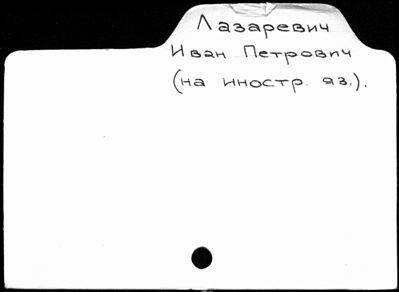 Лазаревич
Иван Петрович
(на иностр. яз.).